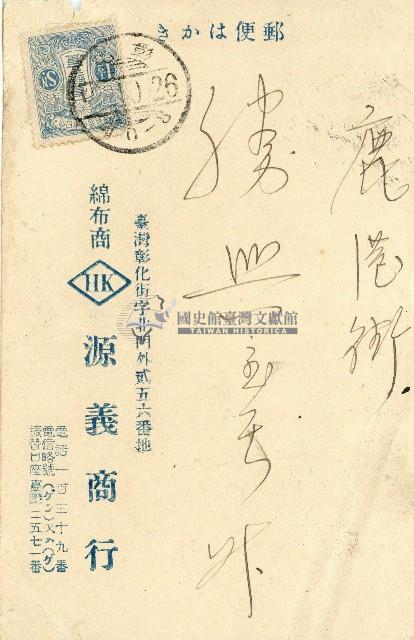 郵便はかき
鹿港街
勝興宝号
臺灣彰化街字北門外貳五六番地
綿布商
HK
源義商行
電話一百三十九番
電信略號(ゲン)又ハ(ゲ)
振替口座臺灣二五七一番
國史館臺灣文獻館
TAIWAN HISTORICA